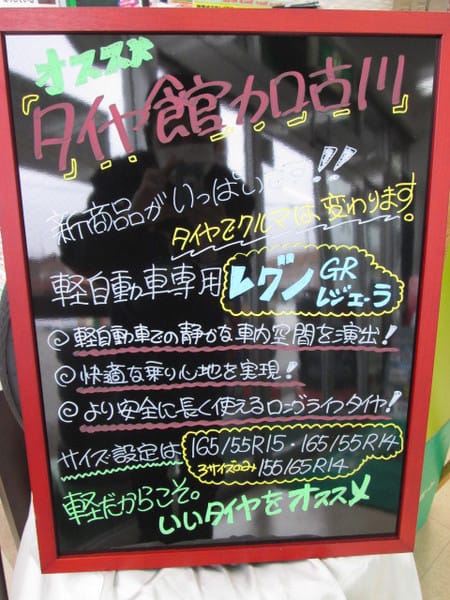 オススメ
『タイヤ館加古川』
新商品がいっぱいです!!
タイヤでクルマは、変わります。
軽自動車専用 レグノ GR
レジェーラ
◎軽自動車での静かな車内空間を演出!
◎快適な乗り心地を実現!
◎より安全に長く使えるロングライフタイヤ!
サイズ設定は 165/55R15・165/55R14
3サイズのみ 155/65R14
軽だからこそ。
いいタイヤをオススメ